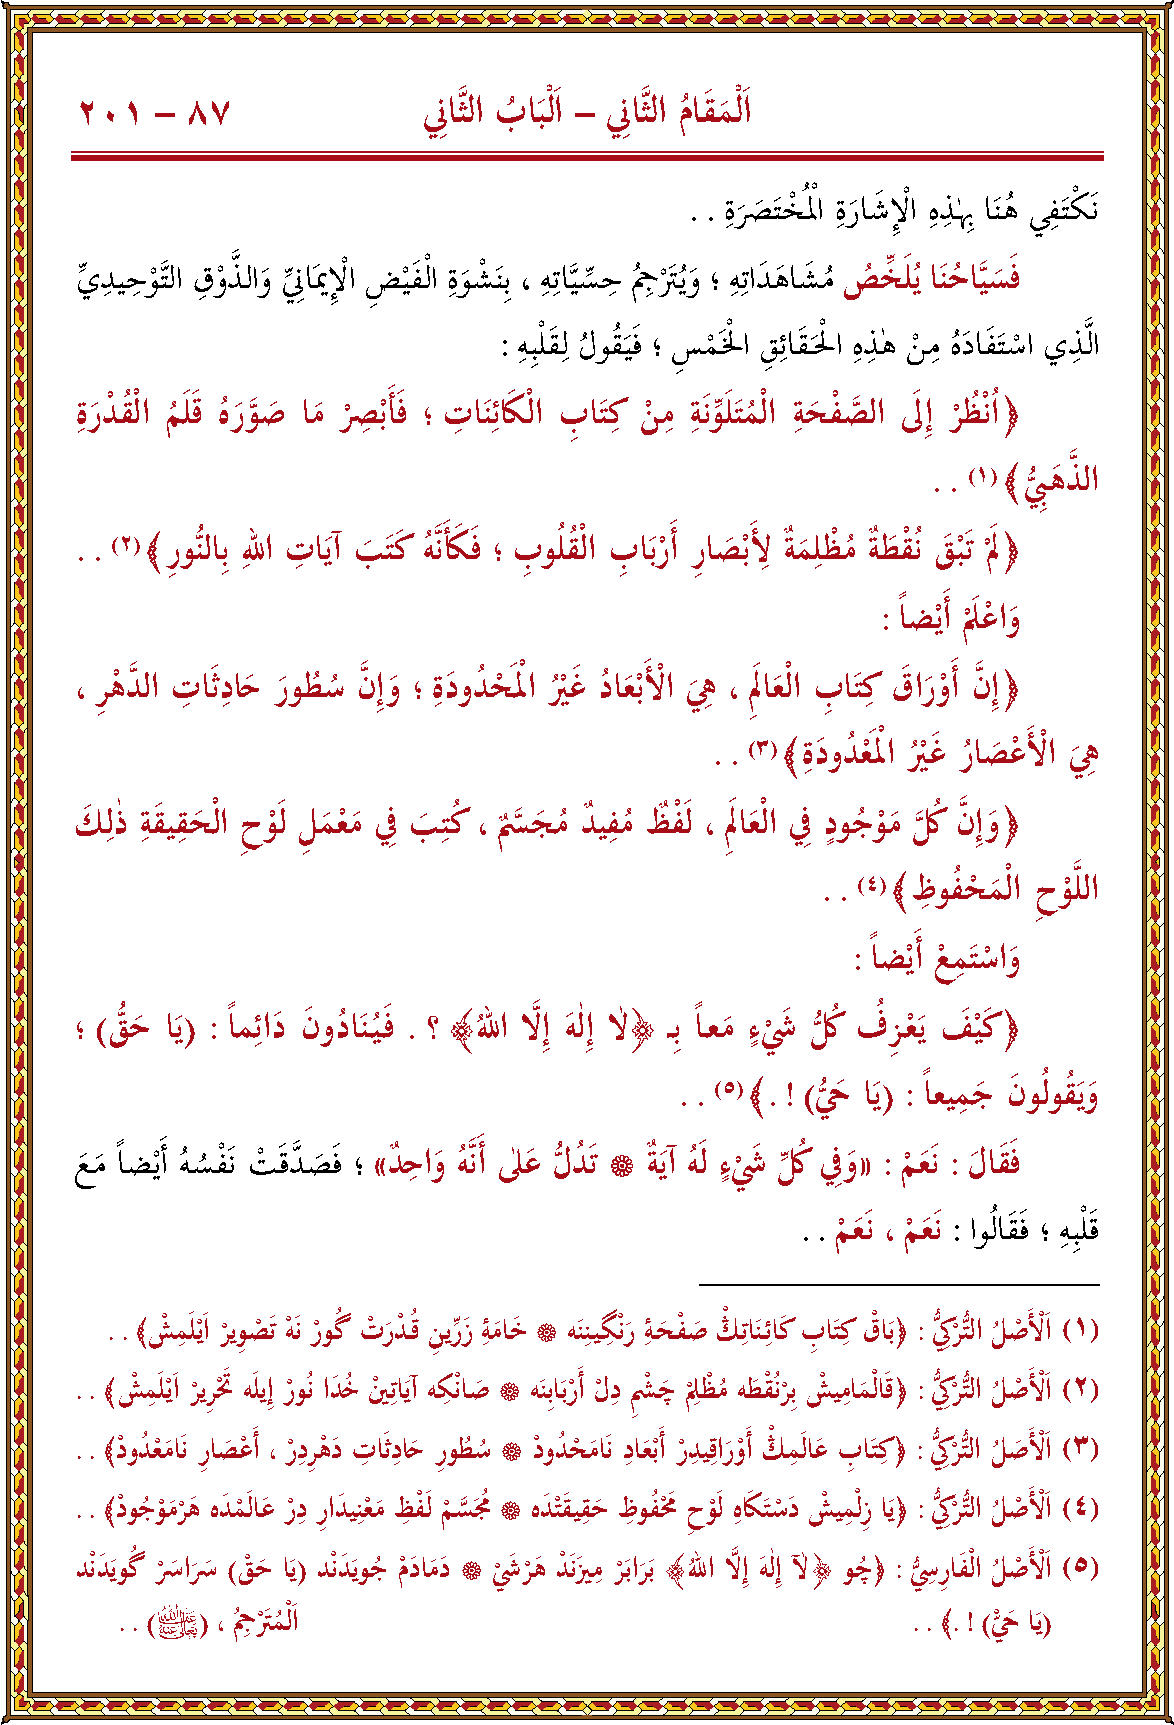 اَلْمَقَامُ الثَّانِي – اَلْبَابُ الثَّانِي ٨٧ – ٢٠١
نَكْتَفِي هُنَا بِهٰذِهِ الْإِشَارَةِ الْمُخْتَصَرَةِ . .
فَسَيَّاحُنَا يُلَخِّصُ مُشَاهَدَاتِهِ ؛ وَيُتَرْجِمُ حِسِّيَّاتِهِ ، بِنَشْوَةِ الْفَيْضِ الْإِيمَانِيِّ وَالذَّوْقِ التَّوْحِيدِيِّ
الَّذِي اسْتَفَادَهُ مِنْ هٰذِهِ الْحَقَائِقِ الْخَمْسِ ؛ فَيَقُولُ لِقَلْبِهِ :
﴿اُنْظُرْ إِلَى الصَّفْحَةِ الْمُتَلَوِّنَةِ مِنْ كِتَابِ الْكَائِنَاتِ ؛ فَأَبْصِرْ مَا صَوَّرَهُ قَلَمُ الْقُدْرَةِ
الذَّهَبِيُّ﴾(١) . .
﴿لَمْ تَبْقَ نُقْطَةٌ مُظْلِمَةٌ لِأَبْصَارِ أَرْبَابِ الْقُلُوبِ ؛ فَكَأَنَّهُ كَتَبَ آيَاتِ اللهِ بِالنُّورِ﴾(٢) . .
وَاعْلَمْ أَيْضاً :
﴿إِنَّ أَوْرَاقَ كِتَابِ الْعَالَمِ ، هِيَ الْأَبْعَادُ غَيْرُ الْمَحْدُودَةِ ؛ وَإِنَّ سُطُورَ حَادِثَاتِ الدَّهْرِ ،
هِيَ الْأَعْصَارُ غَيْرُ الْمَعْدُودَةِ﴾(٣) . .
﴿وَإِنَّ كُلَّ مَوْجُودٍ فِي الْعَالَمِ ، لَفْظٌ مُفِيدٌ مُجَسَّمٌ ، كُتِبَ فِي مَعْمَلِ لَوْحِ الْحَقِيقَةِ ذٰلِكَ
اللَّوْحِ الْمَحْفُوظِ﴾(٤) . .
وَاسْتَمِعْ أَيْضاً :
﴿كَيْفَ يَعْزِفُ كُلُّ شَيْءٍ مَعاً بِـ ﴿لٰا إِلٰهَ إِلَّا اللهُ﴾ ؟ . فَيُنَادُونَ دَائِماً : (يَا حَقُّ) ؛
وَيَقُولُونَ جَمِيعاً : (يَا حَيُّ) ! .﴾(٥) . .
فَقَالَ : نَعَمْ : «وَفِي كُلِّ شَيْءٍ لَهُ آيَةٌ ۞ تَدُلُّ عَلٰى أَنَّهُ وَاحِدٌ» ؛ فَصَدَّقَتْ نَفْسُهُ أَيْضاً مَعَ
قَلْبِهِ ؛ فَقَالُوا : نَعَمْ ، نَعَمْ . .
(١) اَلْأَصْلُ التُّرْكِيُّ : ﴿بَاقْ كِتَابِ كَائِنَاتِڭْ صَفْحَۀِ رَنْگِينِنَه ۞ خَامَۀِ زَرِّينِ قُدْرَتْ گُورْ نَه تَصْوِيرْ اَيْلَمِشْ﴾ . .
(٢) اَلْأَصْلُ التُّرْكِيُّ : ﴿قَالْمَامِيشْ بِرْنُقْطَه مُظْلِمْ چَشْمِ دِلْ أَرْبَابِنَه ۞ صَانْكِه آيَاتِينْ خُدَا نُورْ إِيلَه تَحْرِيرْ اَيْلَمِشْ﴾ . .
(٣) اَلْأَصْلُ التُّرْكِيُّ : ﴿كِتَابِ عَالَمِڭْ أَوْرَاقِيدِرْ أَبْعَادِ نَامَحْدُودْ ۞ سُطُورِ حَادِثَاتِ دَهْرِدِرْ ، أَعْصَارِ نَامَعْدُودْ﴾ . .
(٤) اَلْأَصْلُ التُّرْكِيُّ : ﴿يَا زِلْمِيشْ دَسْتَكَاهِ لَوْحِ مَحْفُوظِ حَقِيقَتْدَه ۞ مُجَسَّمْ لَفْظِ مَعْنِيدَارِ دِرْ عَالَمْدَه هَرْمَوْجُودْ﴾ . .
(٥) اَلْأَصْلُ الْفَارِسِيُّ : ﴿چُو ﴿لَآ إِلٰهَ إِلَّا اللهُ﴾ بَرَابَرْ مِيزَنَدْ هَرْشَيْ ۞ دَمَادَمْ جُويَدَنْدْ (يَا حَقْ) سَرَاسَرْ گُويَدَنْدْ
(يَا حَيْ) ! .﴾ . . اَلْمُتَرْجِمُ ، (ﷻ) . .